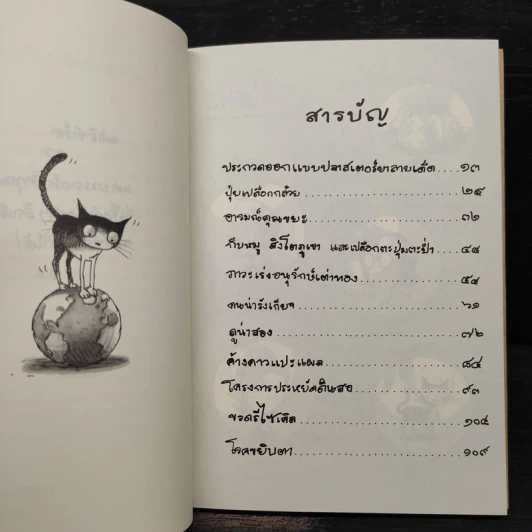 สารบัญ
ประกวดออกแบบปลาสเตอร์ยาลายเด็ด ๑๓
ปุ๋ยเปลือกกล้วย ๒๕
อารมณ์คุณขยะ ๓๒
กีบหมู สิงโตภูเขา และเปลือกตะปุ่มตะป่ำ ๔๘
ภาวะเร่งอนุรักษ์เต่าทอง ๕๔
คนน่ารังเกียจ ๖๑
ลูน่าสอง ๗๒
ค้างคาวแปะแผล ๘๔
โครงการประหยัดดินสอ ๙๓
ขวดรีไซเคิล ๑๐๔
โรคขยิบตา ๑๐๙